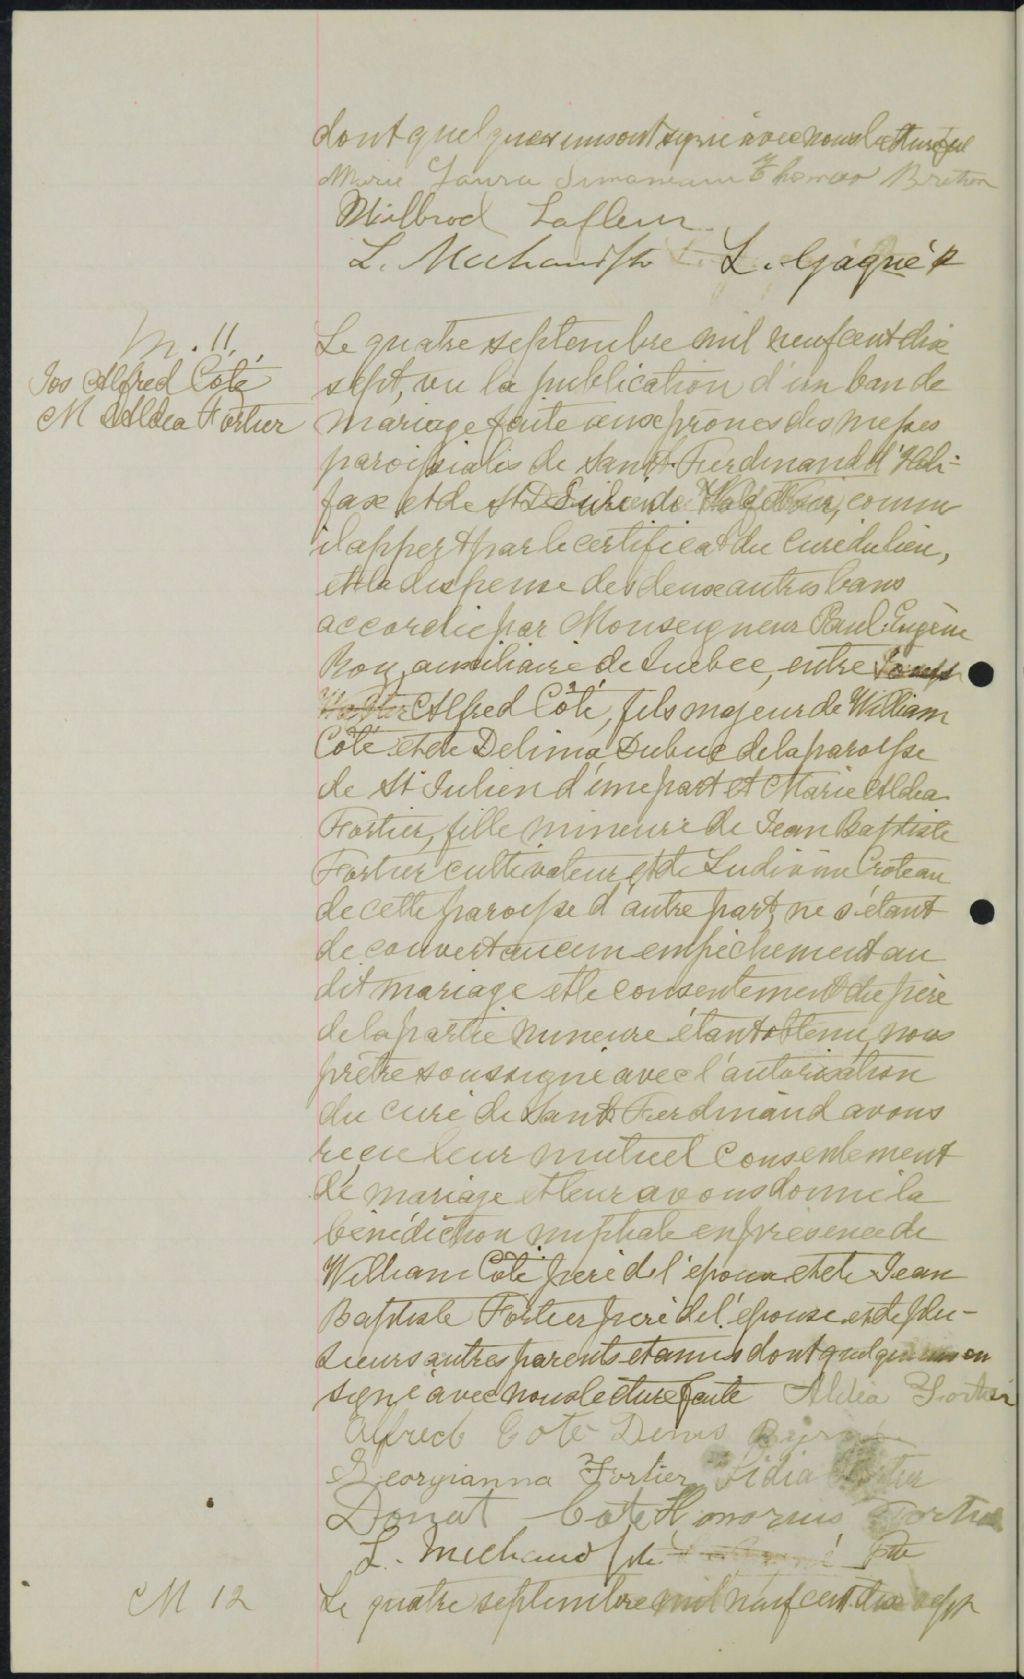 dont quelques uns ont signé avec nous lecture
Marie Laura Simoneau Thomas Breton
Wilbrod Lafleur
L. Michaud ptr L. Gagné p
M. 11
Jos Alfred Coté
M Aldea Fortier
Le quatre septembre mil neuf cent dix
sept, vu la publication d'un ban de
mariage faite aux prônes des messes
paroissiales de Saint Ferdinand d'Hali-
fax et de St comme
il appert par le certificat du curé du lieu,
et la dispense des deux autres bans
accordée par Monseigneur Paul Eugène
Roy, auxiliaire de Québec, entre
Alfred Côté, fils majeur de William
Côté et de Delima Dubuc de la paroisse
de St Julien d'une part et Marie Aldea
Fortier, fille mineure de Jean Baptiste
Fortier cultivateur et de Ludivine Croteau
de cette paroisse d'autre part, ne s'étant
découvert aucun empêchement au
dit mariage et le consentement du père
de la partie mineure étant obtenu, nous
prêtre soussigné avec l'autorisation
du curé de Saint Ferdinand avons
reçu leur mutuel consentement
de mariage et leur avons donné la
bénédiction nuptiale en présence de
William Côté père de l'époux et de Jean
Baptiste Fortier père de l'épouse et de plu-
sieurs autres parents et amis dont quelques uns on
signé avec nous lecture faite Aldea Fortier
Alfred Cote Denis
Georgianna Fortier Lidia Fortier
Donat Coté Honorius Fortier
L. Michaud ptr. Ptr
M 12
Le quatre septembre mil neuf cent dix sept